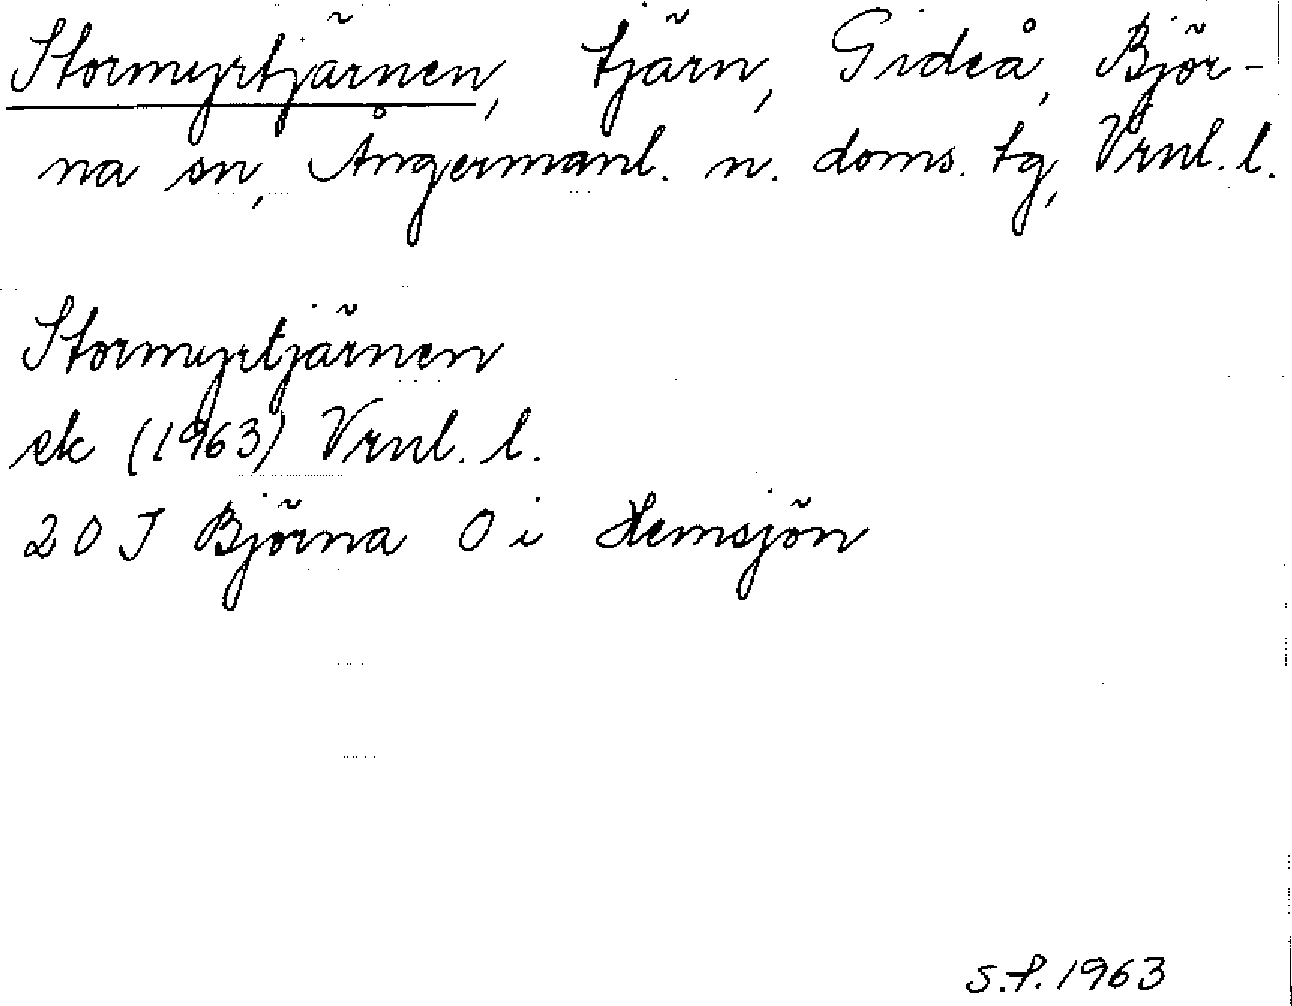 Stormyrtjärnen, tjärn, Gideå, Björ-
na sn, Ångermanl. n. doms. tg, Vrnl. l.
Stormyrtjärnen
ek (1963) Vrnl. l.
20 J Björna O i Hemsjön
S.F. 1963